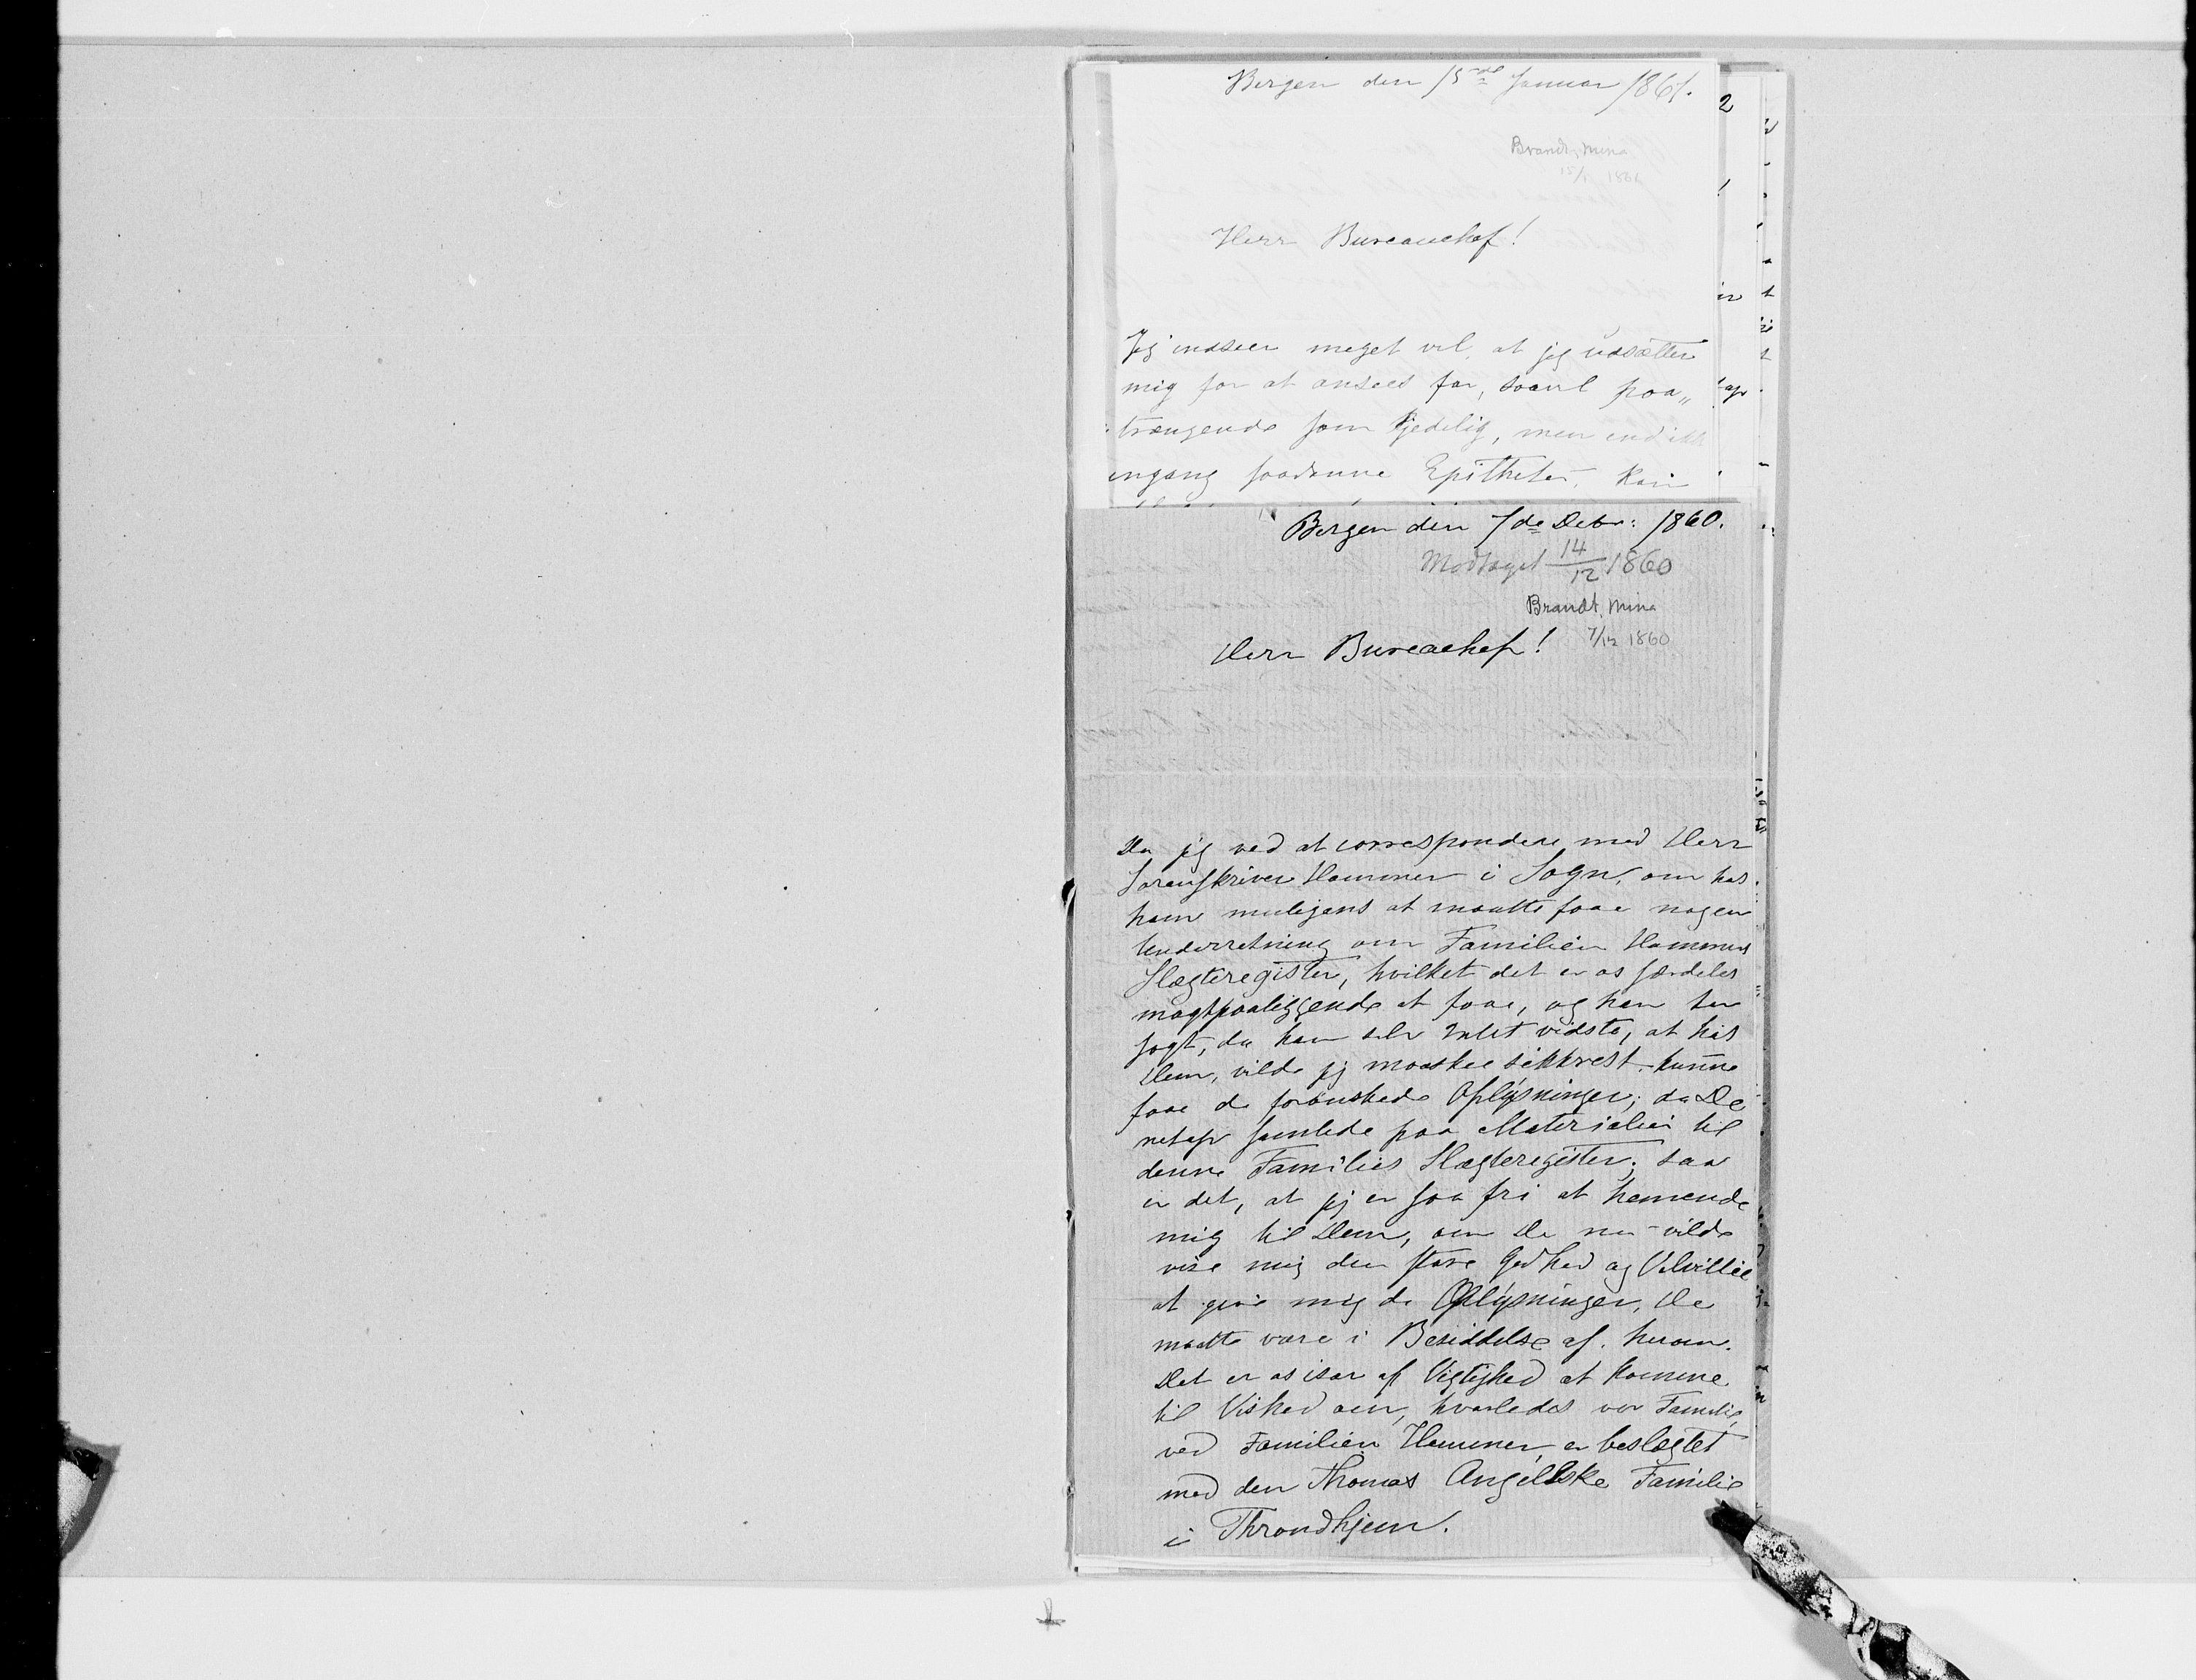 Bergen den 15de Januar 1861.
Brandt, Mina
15/1 1861
Herr Bureauchef!
Jeg indseer meget vel, at jeg udsætter
mig for at ansees for, saavel paa„
trængende som kjedelig, men end ikke
engang saadanne Epitheter, kan
Bergen den 7de Decbr: 1860.
Modtaget 14/12 1860
Brandt, Mina
7/12 1860
Herr Bureachef!
Da jeg ved at correspondere med Herr
Sorenskriver Hammer i Sogn, om hos
ham muligens at maatte faae nogen
Underretning om Familien Hammers
Slægteregister, hvilket det er os særdeles
magtpaaliggende at faae, og han har
sagt, da han selv Intet vidste, at hos
Dem, vilde jeg maaskee sikkrest kunne
faae de forønskede Oplysninger; da De
netop samlede paa Materialier til
denne Families Slægteregister; saa
er det, at jeg er saa fri at henvende
mig til Dem, om De nu vilde
vise mig den store Godhed og Velvillie
at give mig de Oplysninger, De
maatte være i Besiddelse af herom.
Det er os især af Vigtighed at komme
til Vished om, hvorledes vor Familie,
ved Familien Hammer, er beslægtet
med den Thomas Angellske Familie
i Throndhjem.